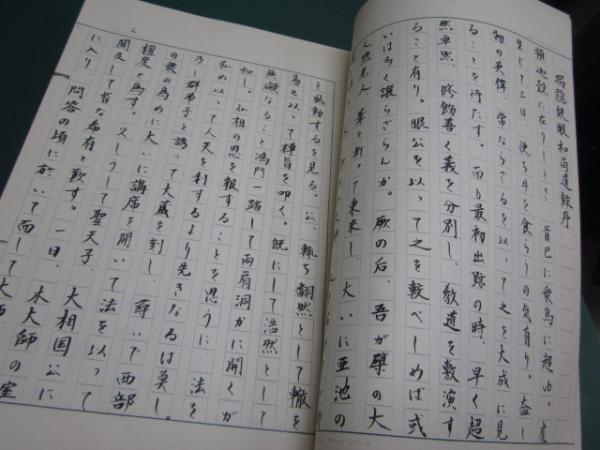 瑞龍鉄眼和尚遺録序
獅地設に在りしとき、首已に衆鳥に超ゆ。虎
生じて三日、便ち牛を食らうの気有り。蓋し
物の英偉、常ならざるを以って之を大成に見
ることを待たず。而も最初出跡の時、早く超
然卓然、時飭善く義を分別し、教道を敷演す
ること有り。眼公を以って之を較べしめば或
いはろく譲らざらんか。厥の后、吾が檗の大
光照老人、葦を折って東来し、大いに亜池の
を風動するを見る。公、輒ち翻然として轍を
易え以って禅旨を叩く。既にして浩然として
無礙なること鴻門一踏して両扇洞かに開くが
如し。仏祖の恩を報ずることを思うに、法を
弘め以って人天を利するより先きなるは莫し。
乃ち群弟子と誘って大蔵を刻し、尋いで西部
の衆の為めに大いに講席を開いて法を以って
檀度と為す。又しうして聖天子、大相国公に
聞及して皆な希有と歎す。一日、木大師の室
に入り、問答の頃に於いて而して大師
2